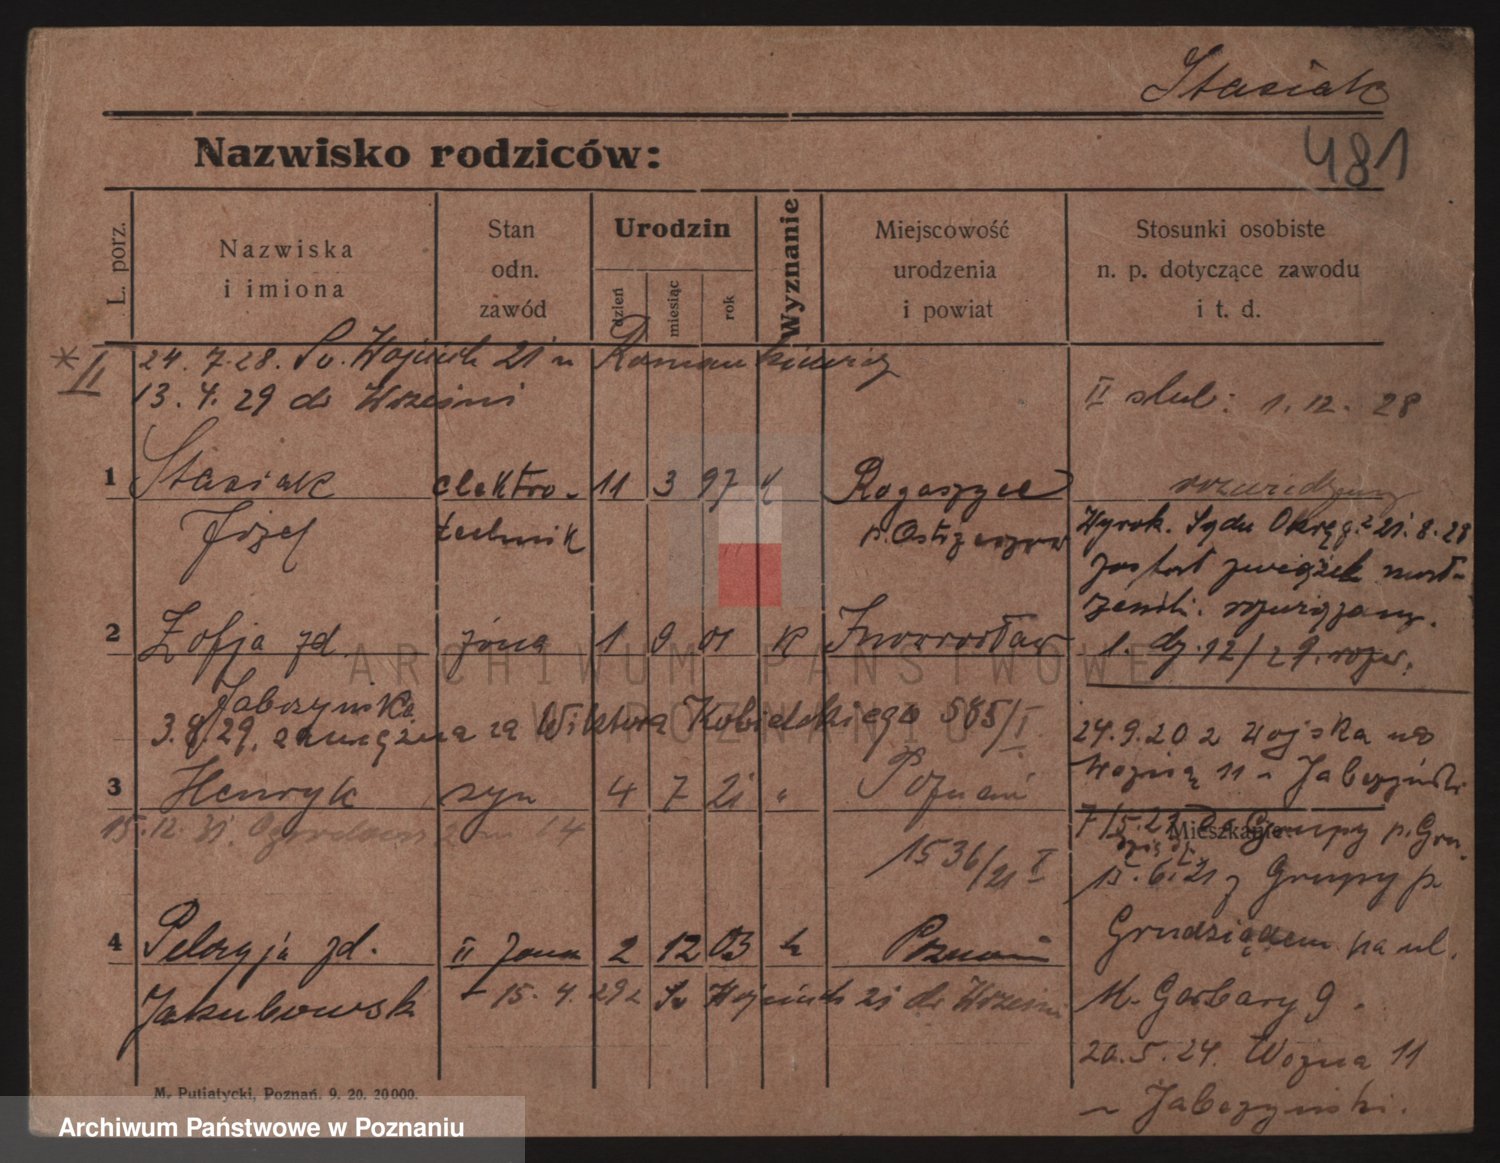 Stasiak
481
Nazwisko rodziców:
L. porz.
Nazwiska
i imiona
Stan
odn.
zawód
Urodzin
dzień
miesiąc
rok
Wyznanie
Miejscowość
urodzenia
i powiat
Stosunki osobiste
n. p. dotyczące zawodu
i t. d.
* II 24. 7. 28. Św. Wojciech 21 u Romankiewicz
13. 4. 29 do Wrześni
II slub: 1. 12. 28
1 Stasiak elektro- 11 3 97 k Rogaszyce
Józef technik p. Ostrzeszow
rozwiedziony
Wyrok. Sądu Okręg. z 21. 8. 28
został związek małż-
2 Zofja zd. żona 1 9 01 k Inowrocław
1. dz. 12/29. rozw.
Jabczyńska
3.8.29. zamężna za Wiktora Kobielskiego 585/I
3 Henryk syn 4 7 21 " Poznań
15. 12. 31.
1536/21 I
24. 9. 20 z Wojska na
Woźną 11 u Jabczyński
Mieszkanie:
7/5. 21 do Grupy p. Gru.
15. 6. 21 z Grupy p
Grudziądzem na ul.
M. Garbary 9.
20. 5. 24. Woźna 11
u Jabczyński.
4 Pelagja zd. II żona 2 12 03 k Poznań
Jakubowsk 15. 4. 29 z Św Wojciech 21 do Wrześni
M. Putiatycki, Poznań. 9. 20. 20000.
ARCHIWUM PAŃSTWOWE
W POZNANIU
Archiwum Państwowe w Poznaniu